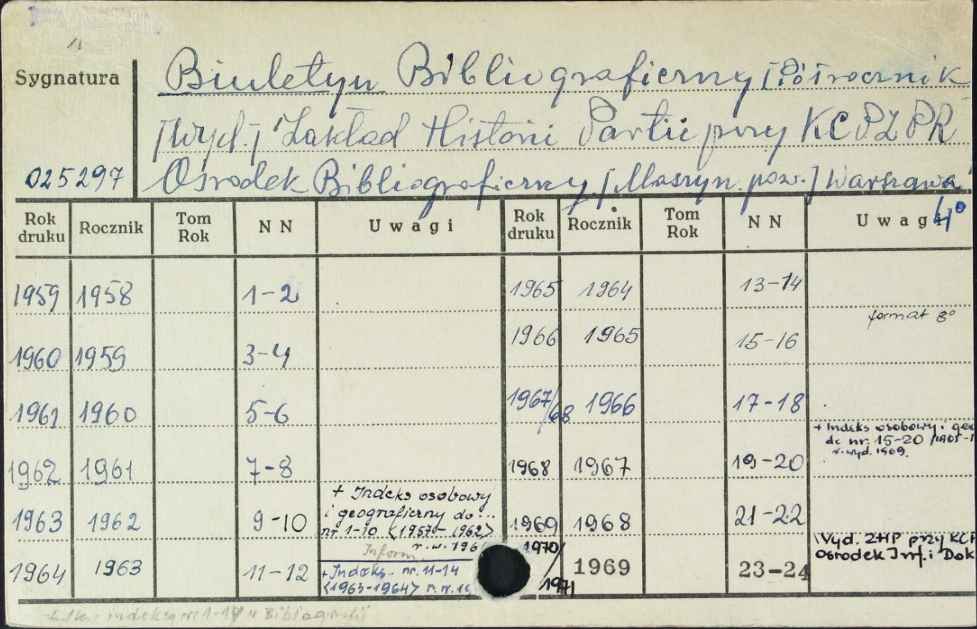 Sygnatura
Biuletyn Bibliograficzny [Półrocznik
[Wyd.] Zakład Historii Partii przy KC PZPR
025297 Ośrodek Bibliograficzny [Maszyn. pow.] Warszawa
4°
Rok druku Rocznik Tom Rok NN Uwagi Rok druku Rocznik Tom Rok NN Uwagi
1959 1958 1-2 1965 1964 13-14
format 8°
1960 1959 3-4 1966 1965 15-16
1961 1960 5-6 1967/68 1966 17-18
+ Indeks osobowy i geo
do nr. 15-20
r. wyd. 1969.
1962 1961 7-8 1968 1967 19-20
+ Indeks osobowy
i geograficzny do...
nr 1-10 (1957-1962)
r. w. 196
1963 1962 9-10 1969 1968 21-22
Inform
+ Indeks nr. 11-14
(1963-1964) r. w. 19
Wyd. ZHP przy KCP
Ośrodek Inf. i Dok
1964 1963 11-12 1970/1971 1969 23-24